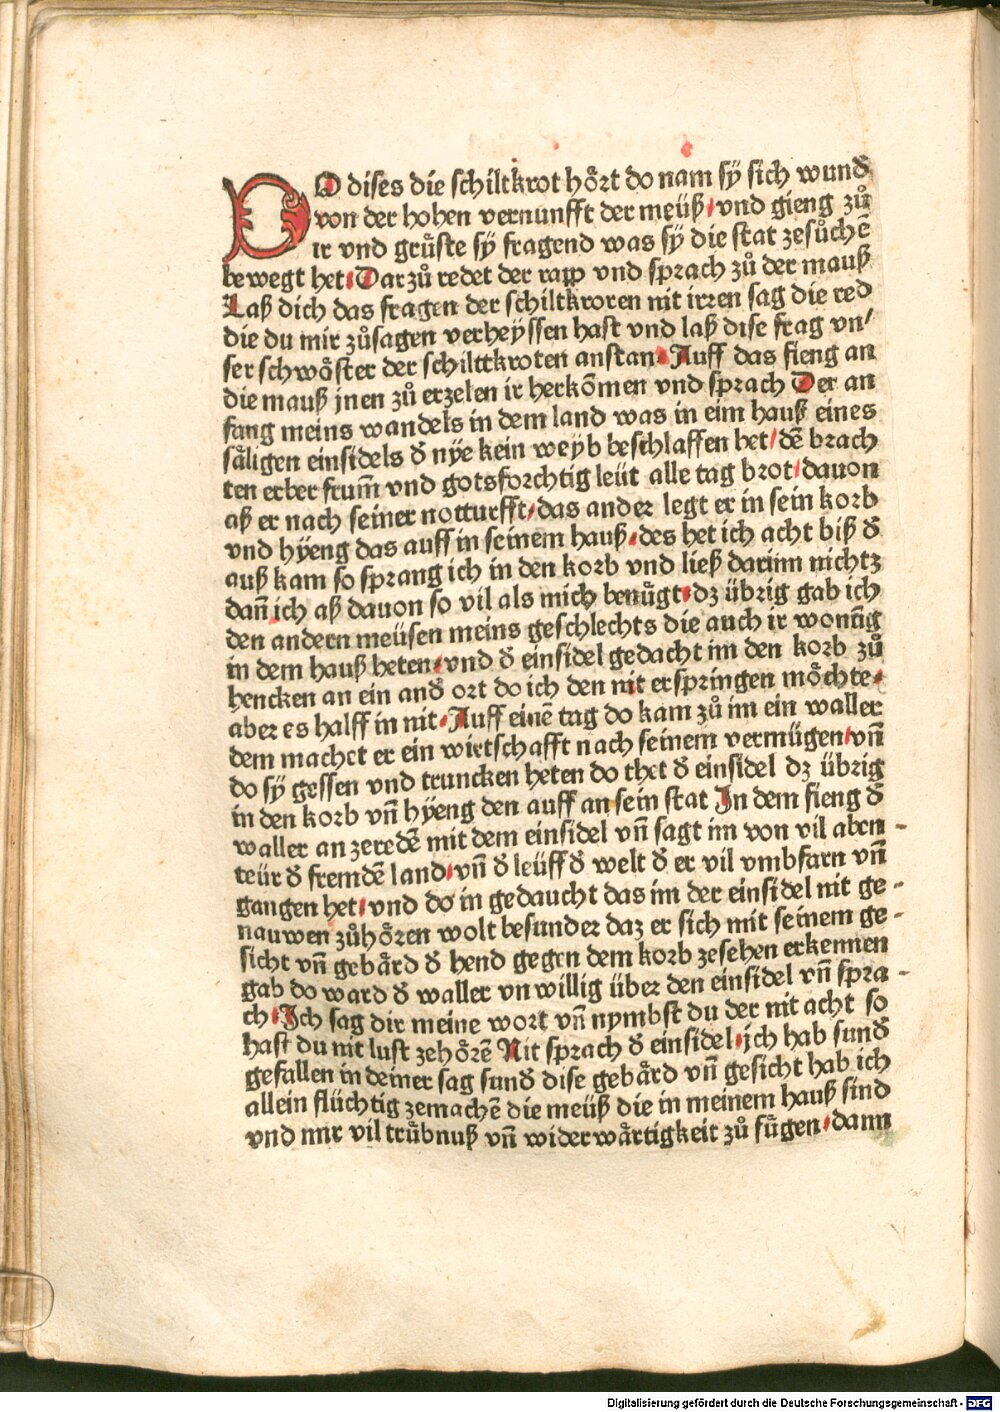 DO dises die schiltkrot hoͤrt do nam sÿ sich wundᷣ
von der hohen vernunfft der meüß/vnd gieng zů
ir vnd gruͤste sÿ fragend was sÿ die stat zesůchē
bewegt het/Darzů redet der rapp vnd sprach zů der mauß
Laß dich das fragen der schiltkroren nit irren sag die red
die du mir zůsagen verheÿssen hast vnd laß dise frag vn/
ser schwoͤster der schilttkroten anstan. Auff das fieng an
die mauß jnen zů erzelen ir herkōmen vnd sprach Der an
fang meins wandels in dem land was in eim hauß eines
saͤligen einsidels dᷣ nÿe kein weyb beschlaffen het/dē brach
ten erber frum̄ vnd gotsforchtig leüt alle tag brot/dauon
aß er nach seiner notturfft/das ander legt er in sein korb
vnd hÿeng das auff in seinem hauß/des het ich acht biß dᷣ
auß kam so sprang ich in den korb vnd ließ darinn nichtz
dan̄ ich aß dauon so vil als mich benuͤgt/dz übrig gab ich
den andern meüsen meins geschlechts die auch ir wonūg
in dem hauß heten/vnd dᷣ einsidel gedacht im den korb zů
hencken an ein andᷣ ort do ich den nit erspringen moͤchte/
aber es halff in nit. Auff einē tag do kam zů im ein waller
dem machet er ein wirtschafft nach seinem vermügen/vn̄
do sÿ gessen vnd truncken heten do thet dᷣ einsidel dz übrig
in den korb vn̄ hÿeng den auff an sein stat In dem fieng dᷣ
waller an zeredē mit dem einsidel vn̄ sagt im von vil aben-
teür dᷣ fremdē land/vn̄ dᷣ leüff dᷣ welt dᷣ er vil vmbfarn vn̄
gangen het/vnd do in gedaucht das im der einsidel nit ge-
nauwen zůhoͤren wolt besunder daz er sich mit seinem ge-
sicht vn̄ gebaͤrd dᷣ hend gegen dem korb zesehen erkennen
gab do ward dᷣ waller vnwillig über den einsidel vn̄ spra-
ch/Ich sag dir meine wort vn̄ nymbst du der nit acht so
hast du nit lust zehoͤrē Nit sprach dᷣ einsidel/ich hab sundᷣ
gefallen in deiner sag sundᷣ dise gebaͤrd vn̄ gesicht hab ich
allein flüchtig zemachē die meüß die in meinem hauß sind
vnd mir vil truͤbnuß vn̄ widerwaͤrtigkeit zů fuͤgen/dann
Digitalisierung gefördert durch die Deutsche Forschungsgemeinschaft - DFG